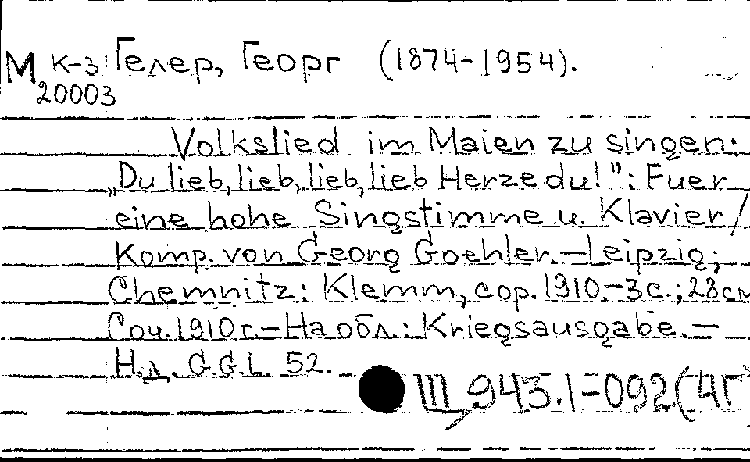 М к-з Гелер, Георг (1874-1954).
20003
Volkslied im Maien zu singen:
„Du lieb, lieb, lieb, lieb Herze du!": Fuer
eine hohe Singstimme u. Klavier/
Komp. von Georg Goehler.—Leipzig;
Chemnitz: Klemm, cop. 1910.-3с.; 28см
Соч. 1910г.—На обл.: Kriegsausgabe.—
Н.д. G.G.L 52.
III, 943.1-092(4Г